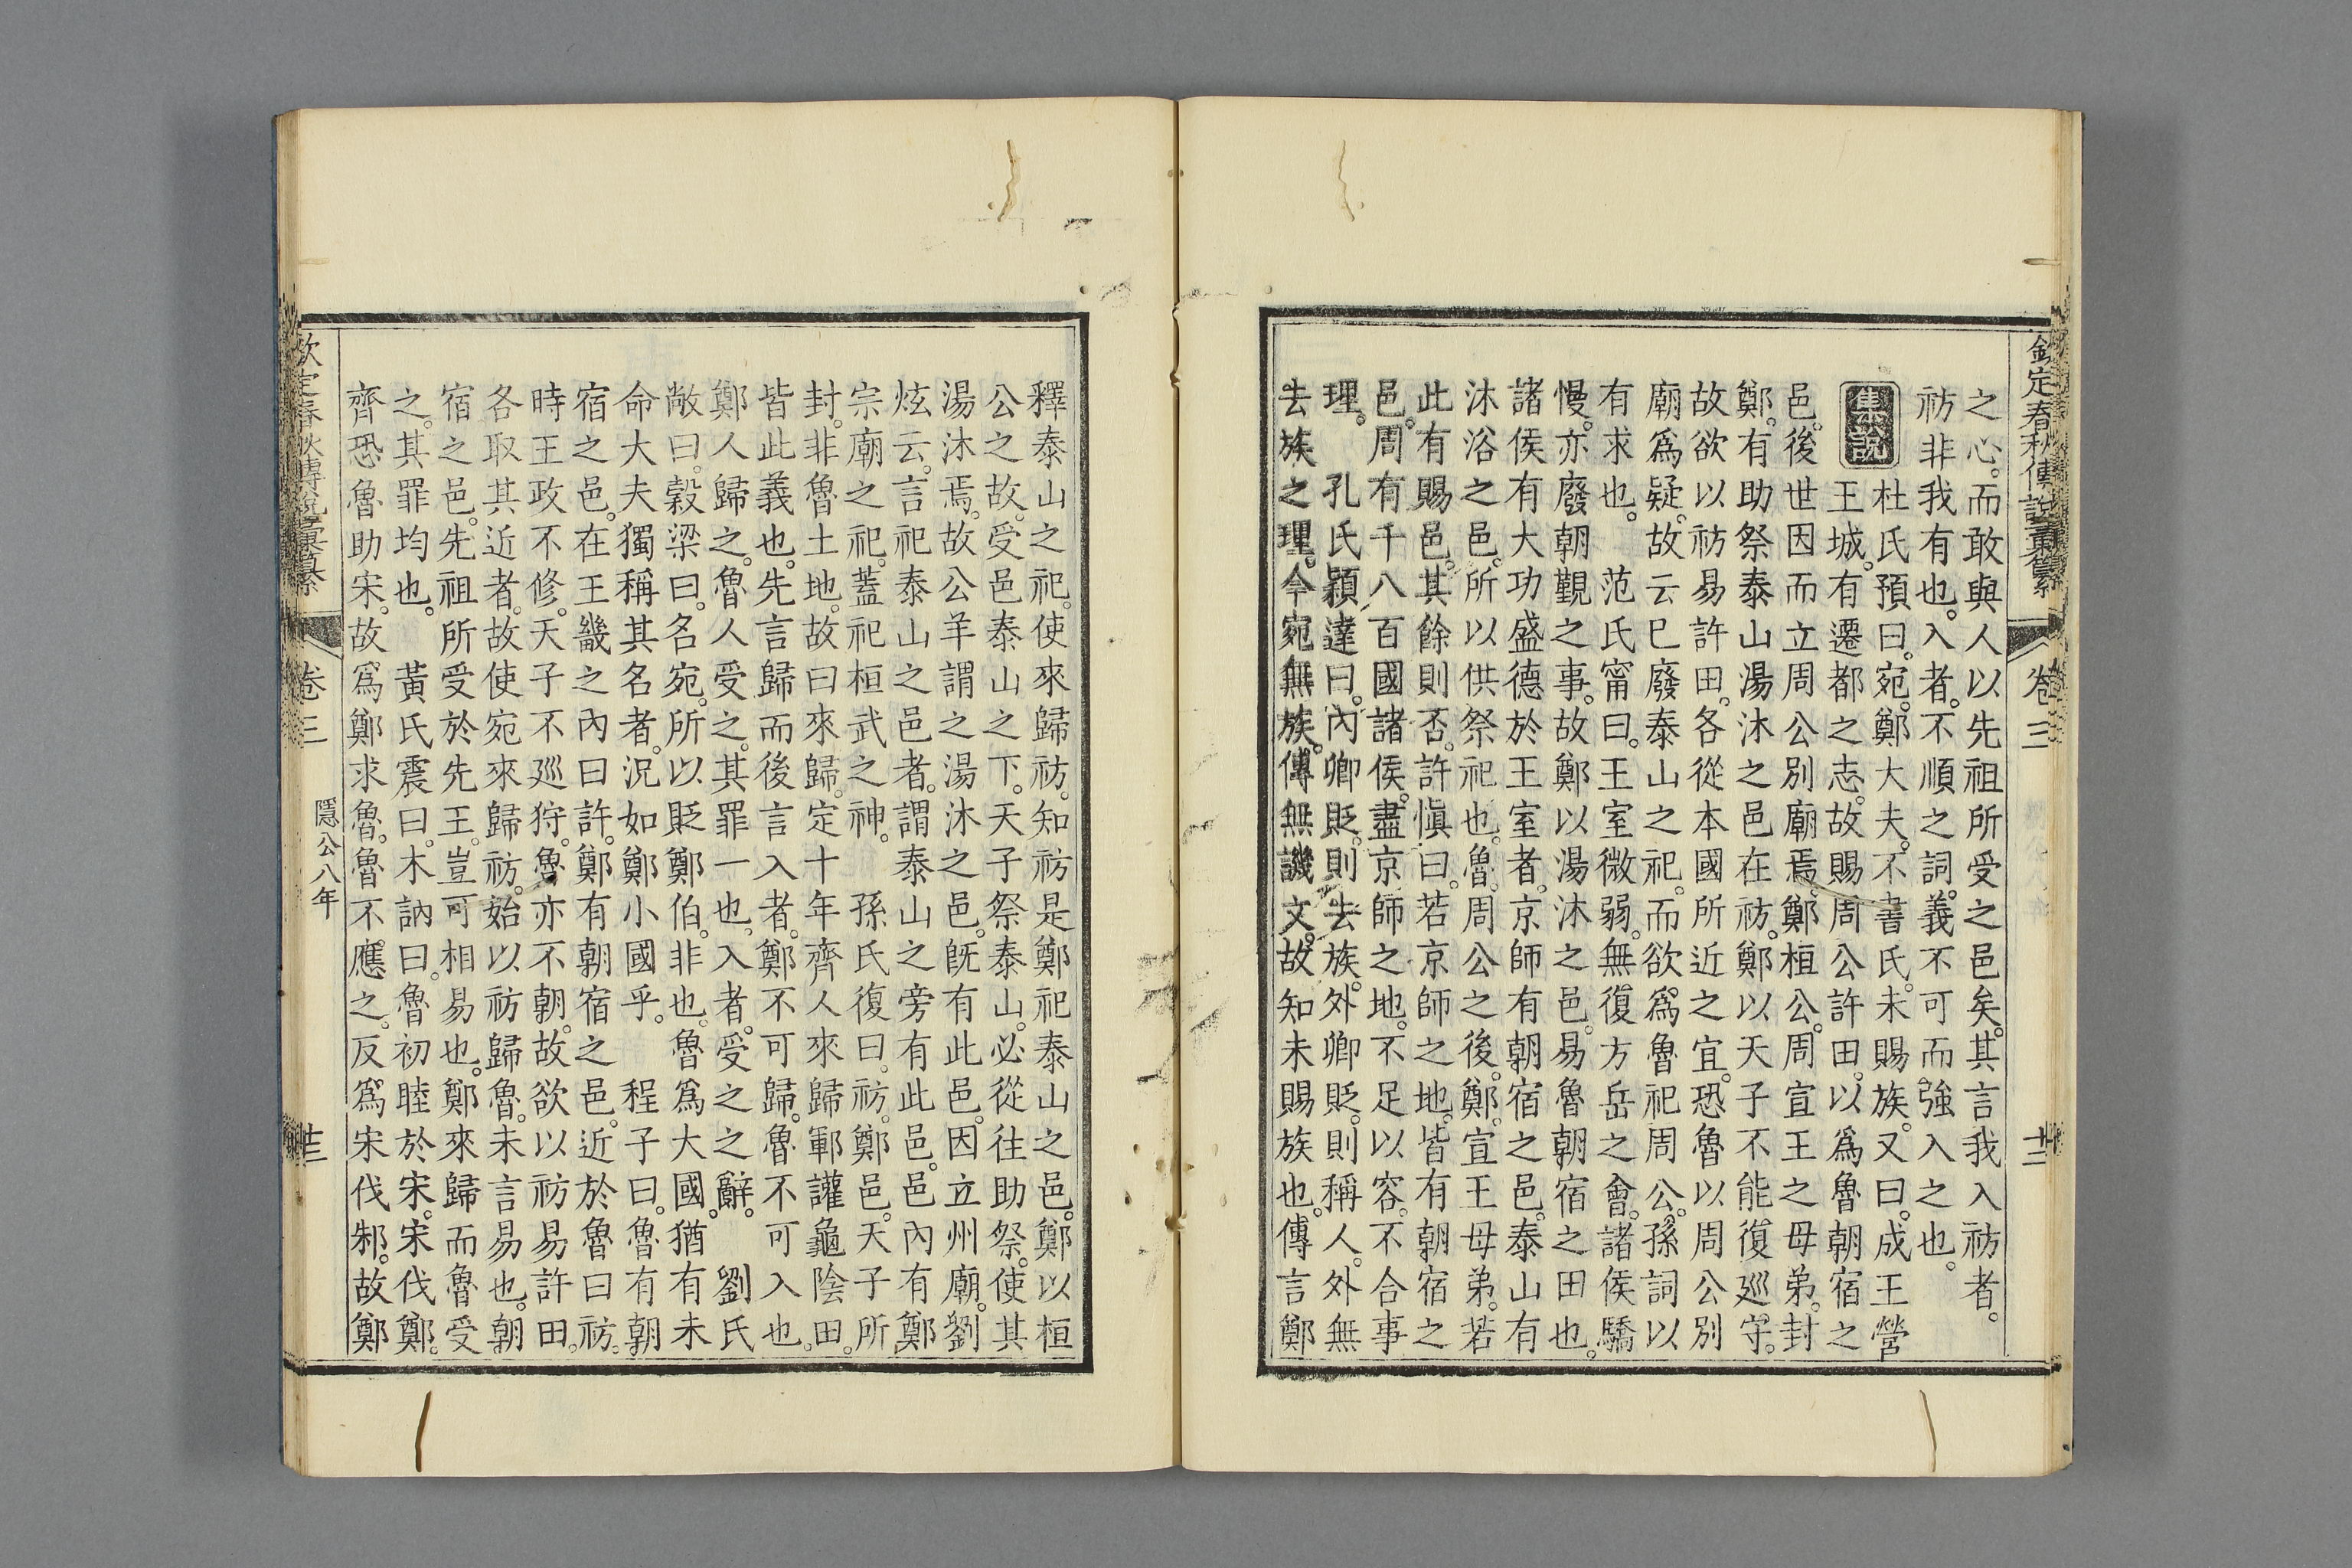 欽定春秋傳說彙纂 卷三 十三
之心。而敢與人以先祖所受之邑矣。其言我入祊者。
祊非我有也。入者。不順之詞。義不可而強入之也。
集說
杜氏預曰。宛。鄭大夫。不書氏。未賜族。又曰。成王營
王城。有遷都之志。故賜周公許田。以爲魯朝宿之
邑。後世因而立周公別廟焉。鄭桓公。周宣王之母弟。封
鄭。有助祭泰山湯沐之邑在祊。鄭以天子不能復巡守。
故欲以祊易許田。各從本國所近之宜。恐魯以周公別
廟爲疑。故云已廢泰山之祀。而欲爲魯祀周公。孫詞以
有求也。 范氏甯曰。王室微弱。無復方岳之會。諸侯驕
慢。亦廢朝覲之事。故鄭以湯沐之邑。易魯朝宿之田也。
諸侯有大功盛德於王室者。京師有朝宿之邑。泰山有
沐浴之邑。所以供祭祀也。魯。周公之後。鄭。宣王母弟。若
此有賜邑。其餘則否。許愼曰。若京師之地。皆有朝宿之
邑。周有千八百國諸侯。盡京師之地。不足以容。不合事
理。 孔氏穎達曰。內卿貶。則去族。外卿貶。則稱人。外無
去族之理。今宛無族。傳無譏文。故知未賜族也。傳言鄭
釋泰山之祀。使來歸祊。知祊是鄭祀泰山之邑。鄭以桓
公之故。受邑泰山之下。天子祭泰山。必從往助祭。使其
湯沐焉。故公羊謂之湯沐之邑。旣有此邑。因立州廟。劉
炫云。言祀泰山之邑者。謂泰山之旁有此邑。邑內有鄭
宗廟之祀。蓋祀桓武之神。 孫氏復曰。祊。鄭邑。天子所
封。非魯土地。故曰來歸。定十年齊人來歸鄆讙龜陰田。
皆此義也。先言歸而後言入者。鄭不可歸。魯不可入也。
鄭人歸之。魯人受之。其罪一也。入者。受之之辭。 劉氏
敞曰。穀梁曰。名宛。所以貶鄭伯。非也。魯爲大國。猶有未
命大夫獨稱其名者。況如鄭小國乎。 程子曰。魯有朝
宿之邑。在王畿之內曰許。鄭有朝宿之邑。近於魯曰祊。
時王政不修。天子不巡狩。魯亦不朝。故欲以祊易許田。
各取其近者。故使宛來歸祊。始以祊歸魯。未言易也。朝
宿之邑。先祖所受於先王。豈可相易也。鄭來歸而魯受
之。其罪均也。 黃氏震曰。木訥曰。魯初睦於宋。宋伐鄭。
齊恐魯助宋。故爲鄭求魯。魯不應之。反爲宋伐邾。故鄭
欽定春秋傳說彙纂 卷三 隱公八年 十三